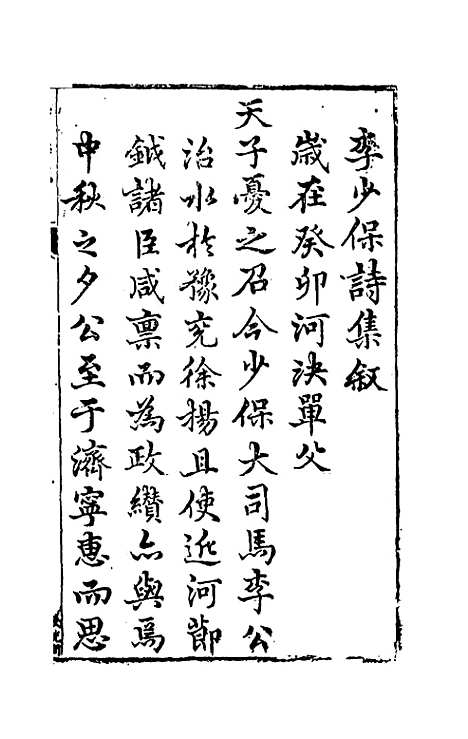 李少保詩集叙
歲在癸卯河決單父
天子憂之召今少保大司馬李公
治水於豫兗徐揚且使近河節
鉞諸臣咸禀而為政纘亦與焉
中秋之夕公至于濟寧惠而思